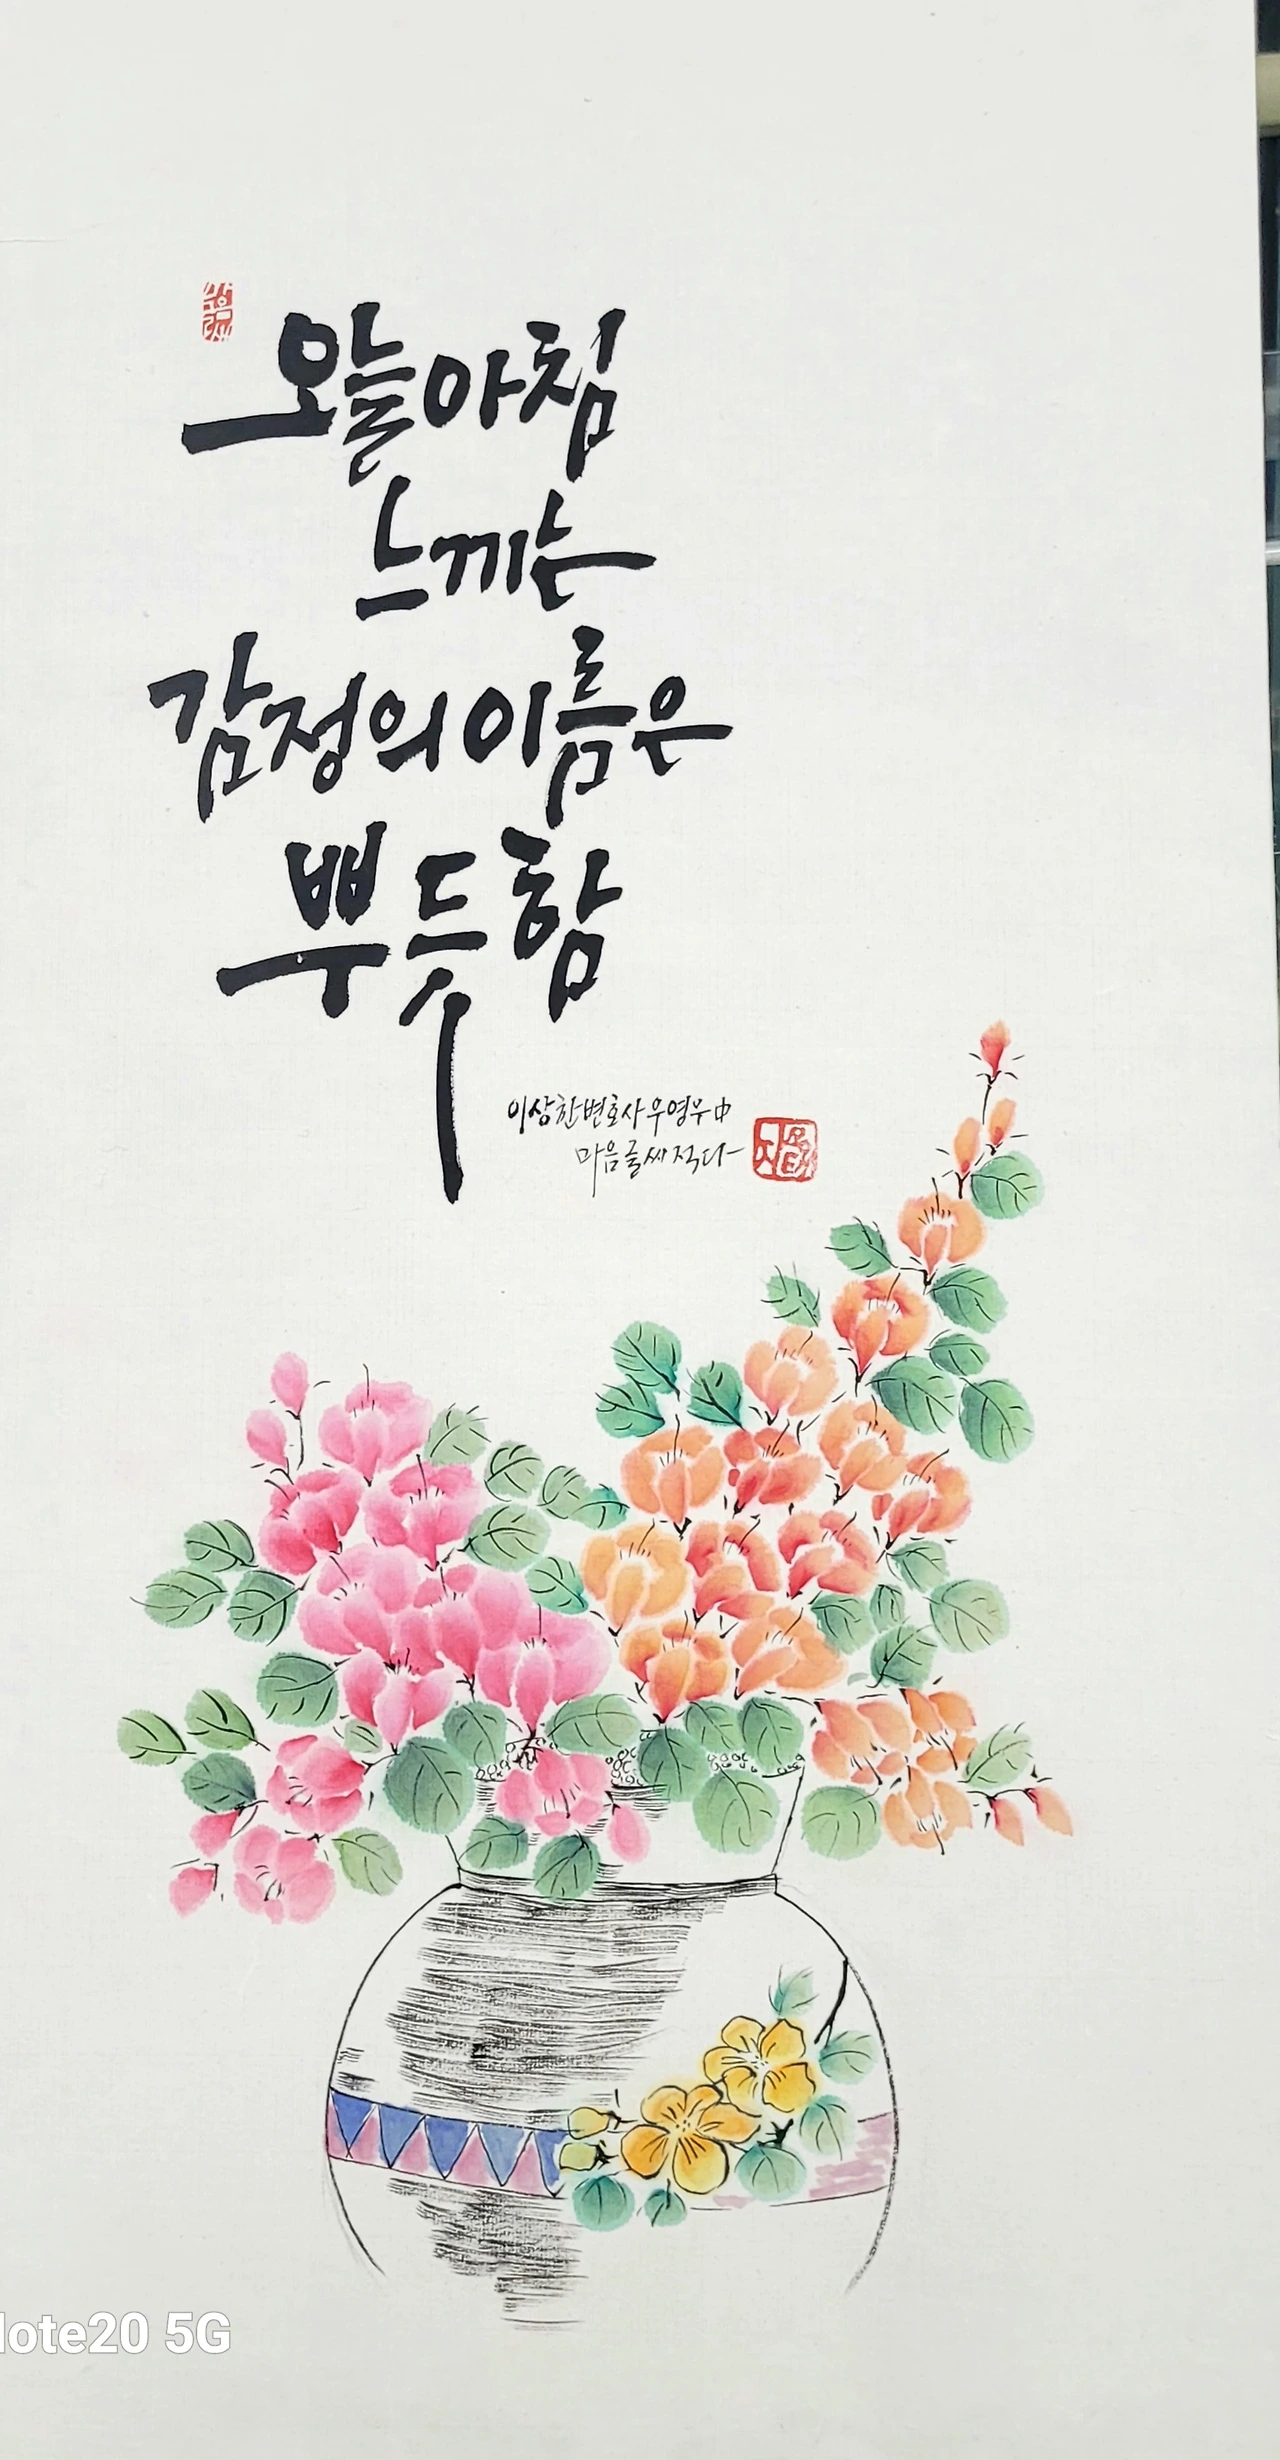 오늘아침
느끼는
감정의 이름은
뿌듯함
이상한변호사우영우中
마음글씨적다
Note20 5G